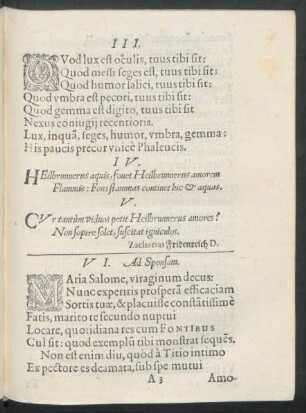 III.
QVod lux est oculis, tuus tibi sit:
Quod messi seges est, tuus tibi sit:
Quod humor salici, tuus tibi sit:
Quod vmbra est pecori, tuus tibi sit:
Quod gemma est digito, tuus tibi sit
Nexus coniugij recentioris.
Lux, inquā, seges, humor, vmbra, gemma:
His paucis precor vnicè Phaleucis.
IV.
HEilbrunnerus aquis, fouet Heilbrunnerus amorem
Flammis: Fons flammas continet hic & aquas.
V.
CVr tantùm viduas petit Heilbrunnerus amores?
Non sopire solet, suscitat igniculos.
Zacharias Fridenreich D.
VI. Ad Sponsam.
MAria Salome, viraginum decus:
Nunc experitis prosperā efficaciam
Sortis tuæ, & placuisse constātissimè
Fatis, marito te secundo nuptui
Locare, quotidiana res cum FONTIBUS
Cuī sit: quod exemplū tibi monstrat sequēs.
Non est enim diu, quòd à Titio intimo
Ex pectore es deamata, sub spe mutui
A 3 Amo-